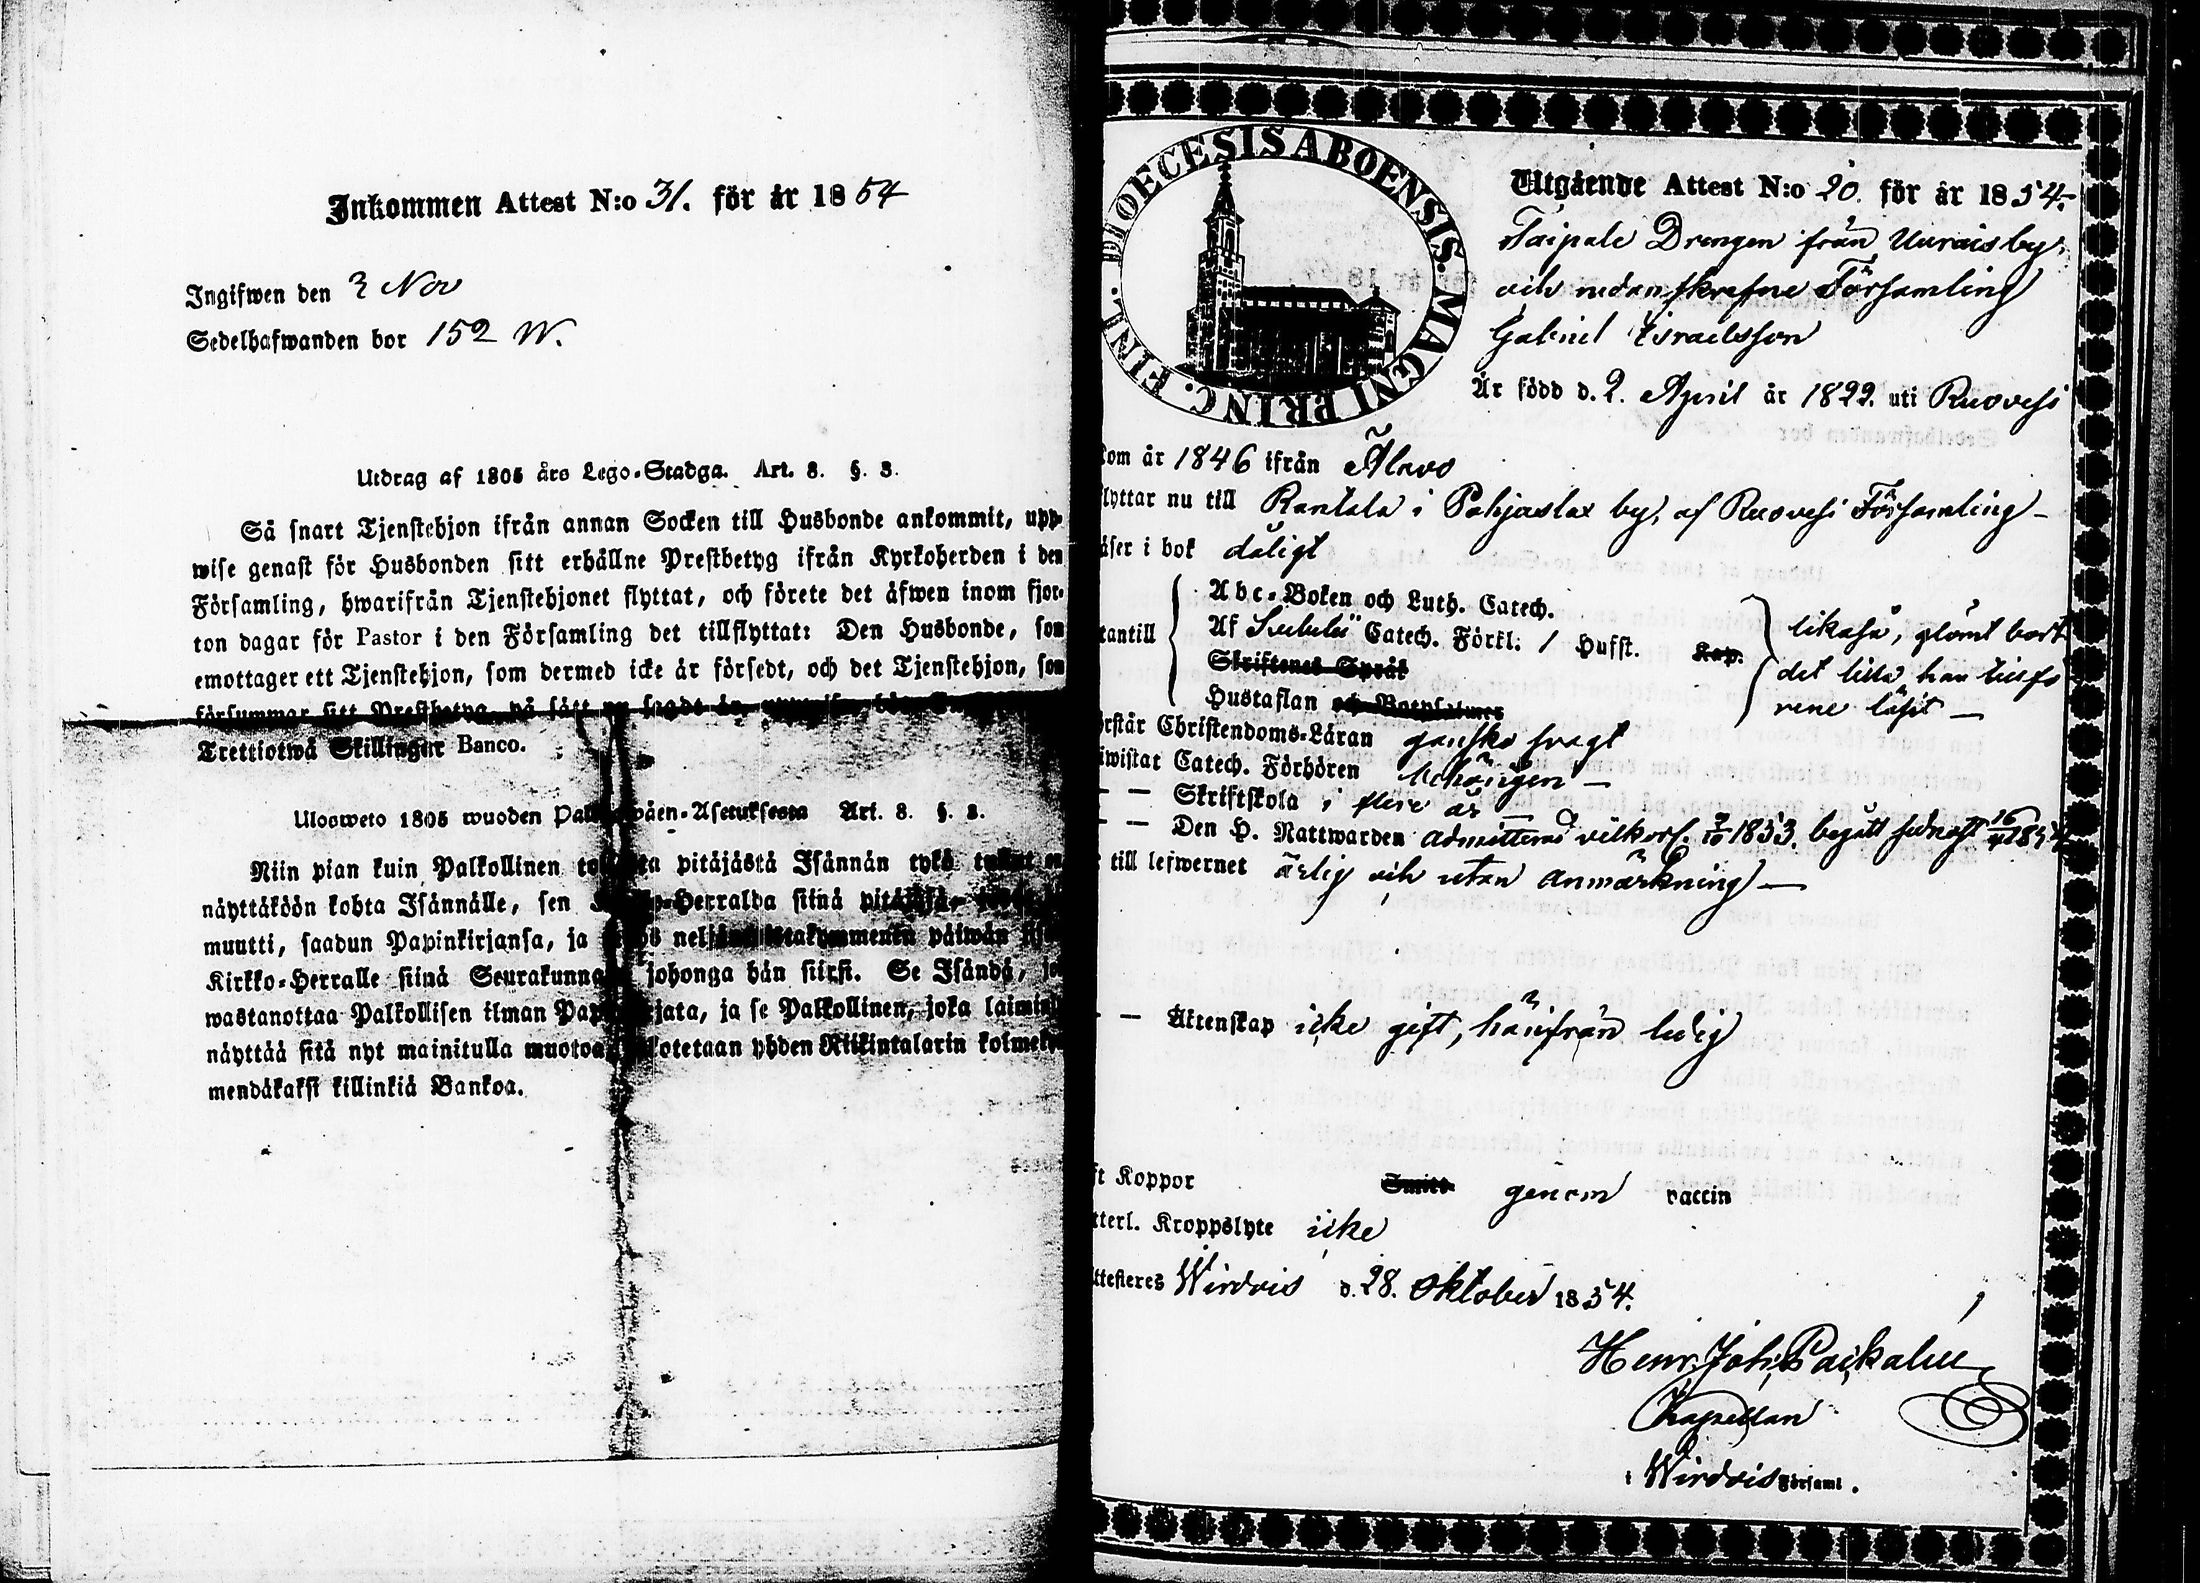 Inkommen Attest N:o 31. för år 1854
Ingifwen den 3 Nov
Sedelhafwanden bor 152 W.
Utdrag af 1805 års Lego-Stadga. Art. 8. §. 3.
Så snart Tjenstehjon ifrån annan Socken till Husbonde ankommit, upp-
wise genast för Husbonden sitt erhållne Prestbetyg ifrån Kyrkoherden i den
Församling, hwarifrån Tjenstehjonet flyttat, och förete det äfwen inom fjor-
ton dagar för Pastor i den Församling det tillflyttat: Den Husbonde, som
emottager ett Tjenstehjon, som dermed icke är försedt, och det Tjenstehjon, som
försummar sitt Prestbetyg, på sätt nu sagdt är,
Trettiotwå Skillingar Banco.
Ulosweto 1805 wuoden Asetuksesta Art. 8. §. 3.
Niin pian kuin Palkollinen pitäjästä Isännän tykö
näyttäköön kohta Isännälle, sen Herralda siinä pitäjäsä,
muutti, saadun Papinkirjansa, ja päiwän
Kirkko-Herralle siinä johonga hän siirsi. Se Isändä,
wastanottaa Palkollisen ilman ja se Palkollinen, joka
näyttää sitä nyt mainitulla yhden Riikintalarin
mendäkaksi killinkiä Bankoa.
DIOECESIS ABOENSIS. MAGNI PRINC. FINL.
Utgående Attest N:o 20. för år 1854.
Taipale Drengen från Uuraisby,
och nedanskrefne Församling
Gabriel Israelsson
Är född d. 2. April år 1822. uti Ruovesi
kom år 1846 ifrån Ålavo
flyttar nu till Rantala i Pohjaslax by, af Ruovesi Församling
läser i bok dåligt
Abc-Boken och Luth. Catech.
utantill Af Catech. Förkl. / Hufst. Kap. likaså, glömt bort
Skriftenes Språk det lilla han tillfö
Hustaflan och Botpsalmer rene läsit
förstår Christendoms-Läran ganska svagt
Catech. Förhören
— — Skriftskola i flere år
— — Den H. Nattwarden begått
till lefwernet ärlig och utan anmärkning
— — Äktenskap icke gift, härifrån ledig
Koppor Smitt. genom vaccin
Kroppslyte icke
Attesteres Wirdois d. 28. Oktober 1854.
Henr. Joh.
Kapellan
i Wirdois Församl.